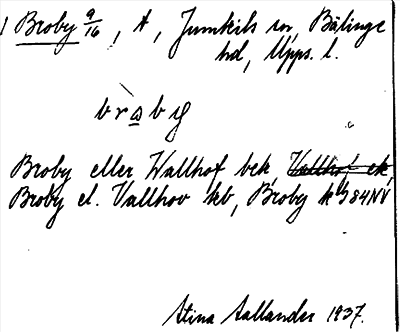 1 Broby 9/16, A, Jumkils sn, Bälinge
hd, Upps. l.
bròby
Broby eller Wallhof bek, Vallhof ek,
Broby el. Vallhov kb, Broby k 84NV
Stina Aallander 1937.